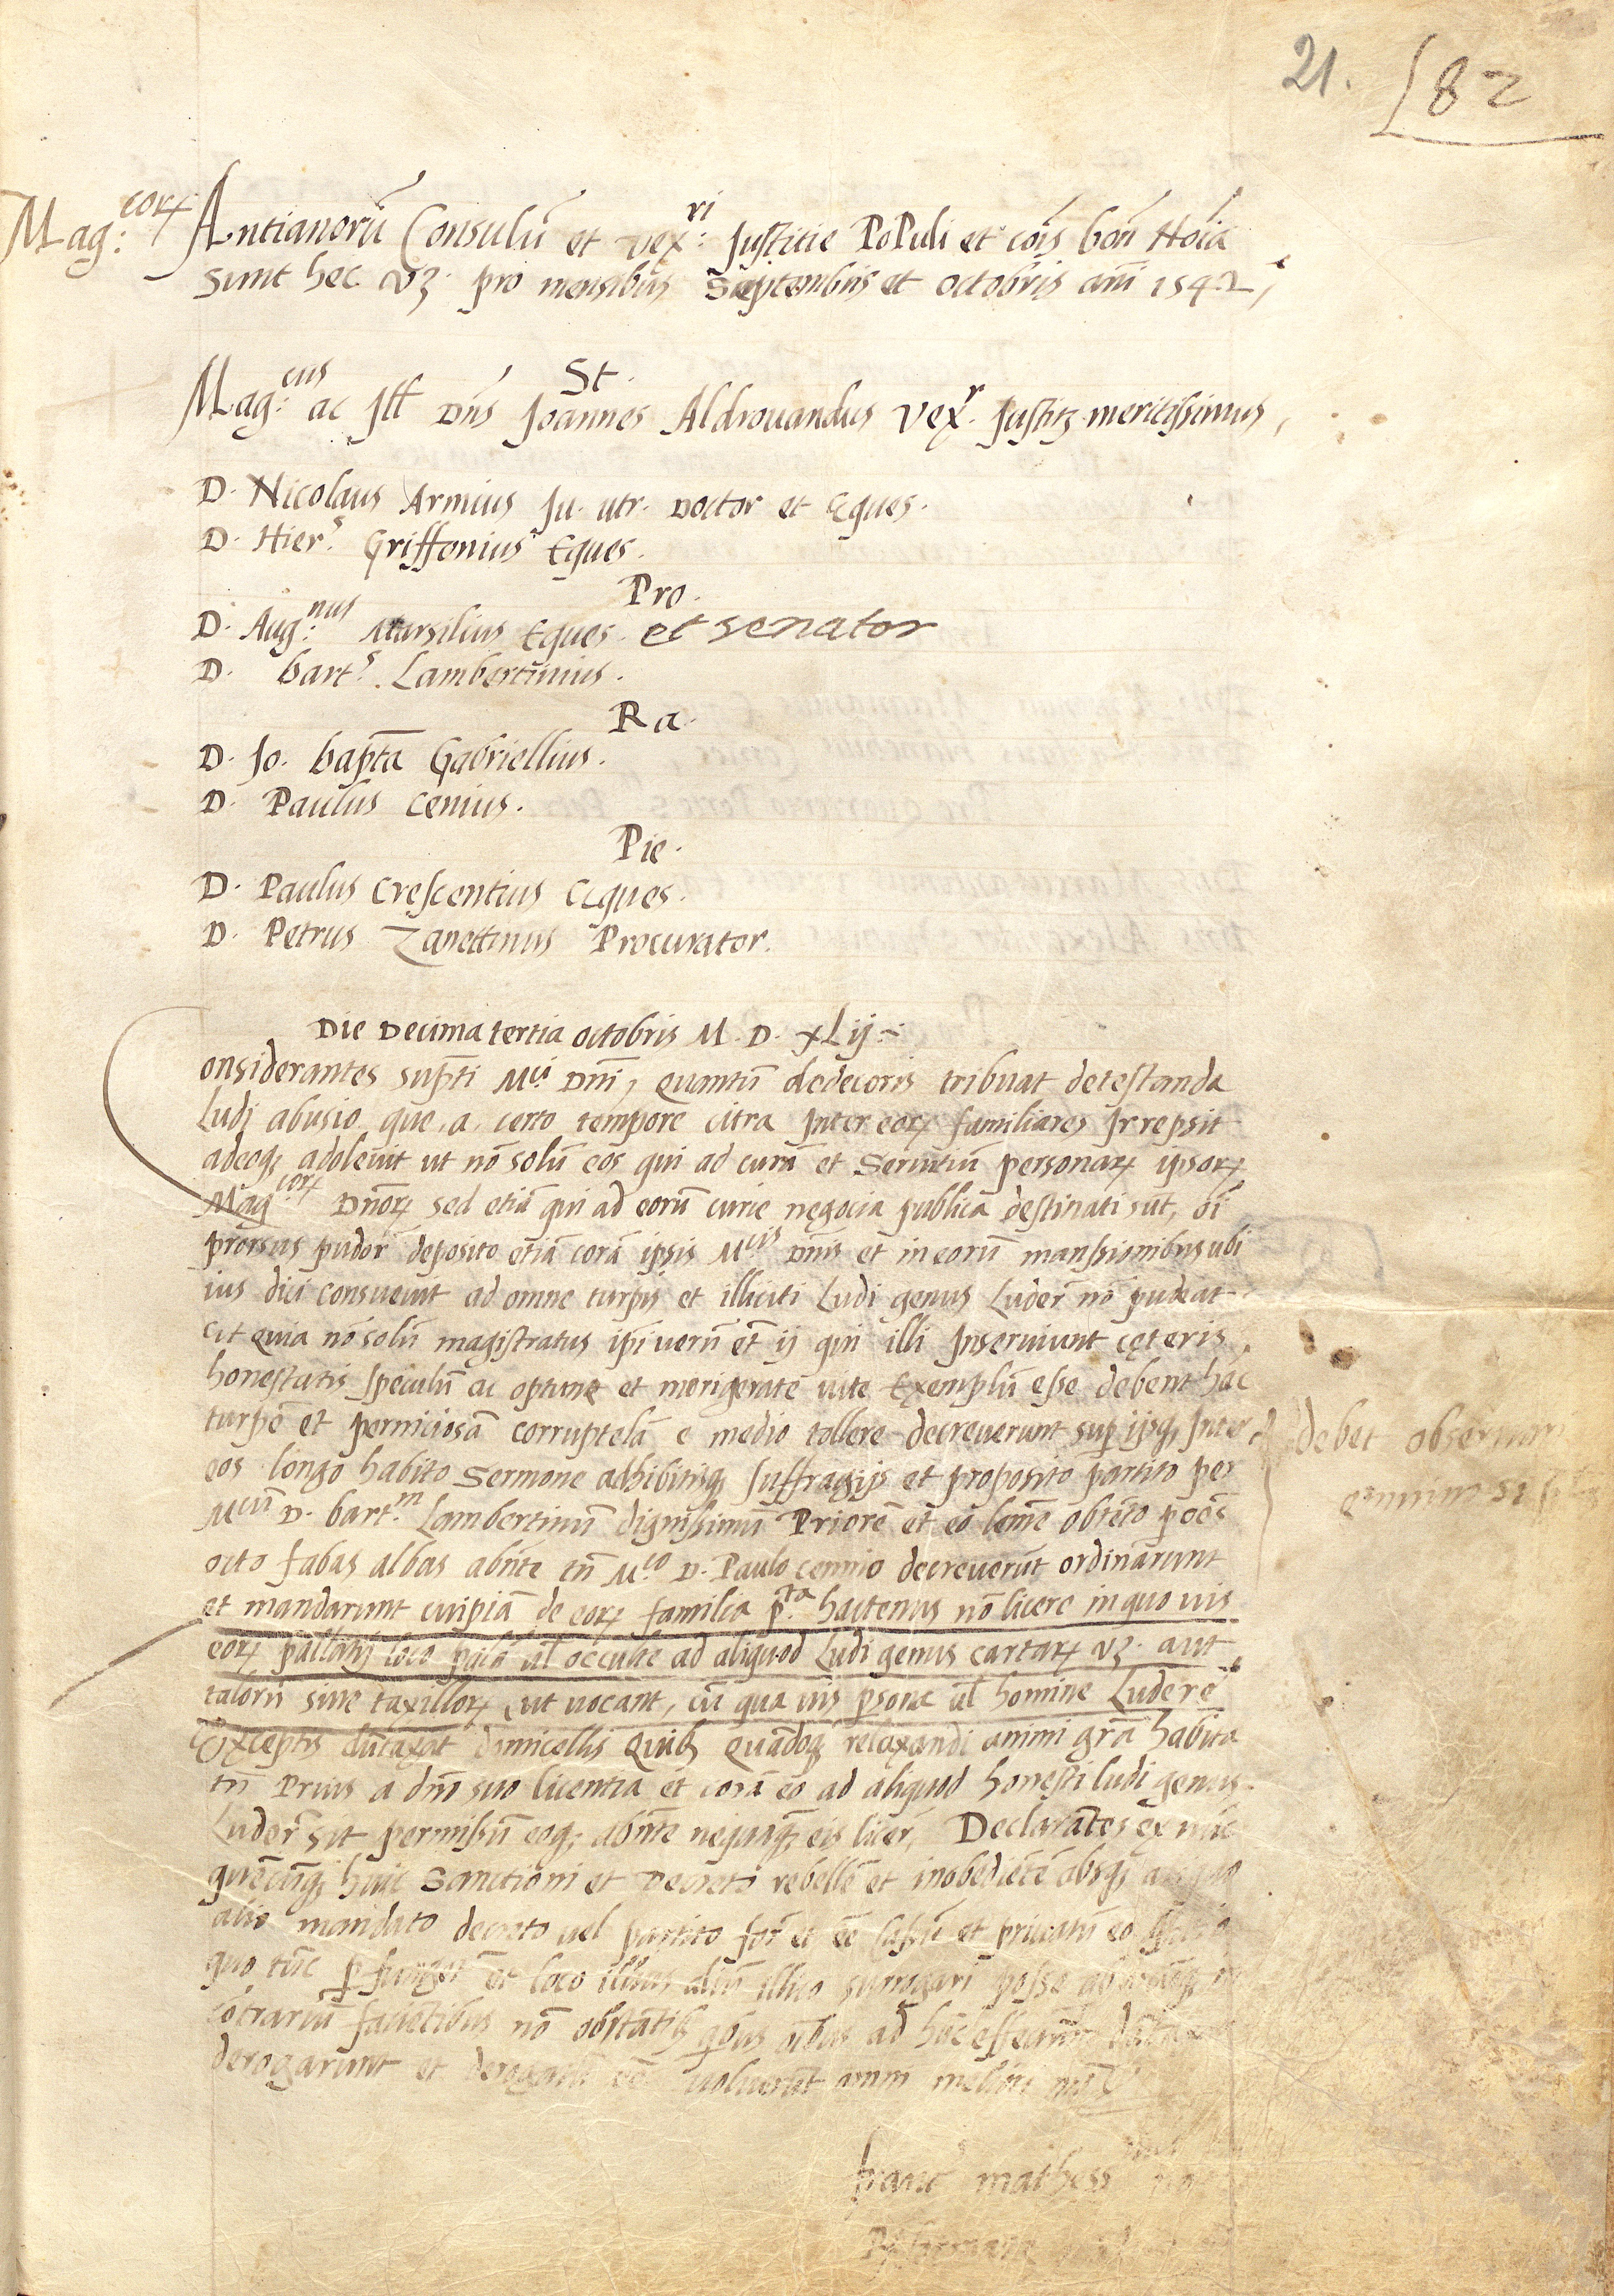 21. 82
Mag:corꝝ Antianorū Consulū et vex:ri Justitie PoPuli et cōis bon̄ Noīa
sunt hec vꝫ. pro mensibus Septembris et octobris anni 1542,
St.
Mag:cus ac Ill Dn̄s Joannes Aldrouandus Vexr. Justitę meritissimus,
D. Nicolaus Armius Ju. utr. Doctor et Eques.
D. Hiers. Griffonius Eques.
Pro.
D. Aug:nus Marsilius Eques. et senator
D. barts. Lambertinius.
Ra.
D. Jo. bapt̄a Gabriellius.
D. Paulus Cenius.
Pie.
D. Paulus Crescentius Eques.
D. Petrus Zanettinus Procurator.
Die Decima tertia octobris M. D. XLij
Considerantes sup̄ti Mci Dn̄i, quantū dedecoris tribuat detestanda
Ludi abusio que a certo tempore citra Inter eorꝝ familiares Irrepsit
adeoqꝫ adoleuit ut nō solū eos qui ad curā et Seruitiū personarꝝ ipsorꝝ
Magcorꝝ Dn̄orꝝ sed etiā qui ad eorū curie negocia publica destinati sūt, oī
prorsus pudor̄ deposito etiā corā ipsis Mcis Dn̄is et in eorū manssionibus ubi
ius dici consueuit ad omne turpis et illiciti Ludi genus Luder̄ nō pudeat
et quia nō solū magistratus ip̄i uerū et̄ ij qui illi Inseruiunt cęteris
honestatis speculū ac optime et morigerate uite Exemplū esse debent hāc
turpē et perniciosā corruptelā e medio tollere decreuerunt sup̄ ijsqꝫ Inter
eos longo habito Sermone adhibitisqꝫ suffragijs et proposito partito per
Mcū D. bartm. Lambertinū dignissimū Priorē et eo leḡme obtēto p̄ oēs
octo fabas albas abn̄te tn̄ Mco D. Paulo cennio decreuerūt ordinarunt
et mandarunt cuipiā de eorꝝ familia p̄ta hactenus nō licere in quo uis
eorꝝ pallatij loco palā ul̄ occulte ad aliquod Ludi genus cartarꝝ vꝫ. aut
talorū siue taxillorꝝ ut uocant, cū qua uis p̄sona ul̄ homine Ludere
Exceptis dūtaxat domicellis quibꝫ quādoqꝫ relaxandi animi gr̄a habita
tn̄ Prius a dn̄o suo licentia et corā eo ad aliquod honesti ludi genus
Luder̄ sit permissū eoqꝫ abn̄te nequaqꝫ eis licer̄, Declarātes ex nūc
quēcūqꝫ huic Sanctioni et Decreto rebellē et inobediētē absqꝫ aliquo
alio mandato decreto uel partito for̄ et eē lapsū et priuatū eo officio
quo tūc et loco illius aliū illico surrogari posse
cōtrariū faciētibus nō obstātibꝫ quibus ad hūc effectum
derogarunt et uoluerūt omni meliori
debet obseruari
franc mathess